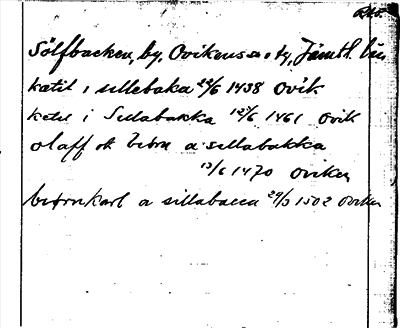 Sölfbacken, by, Ovikens s o ty, Jämtl. län
katil i sillebaka 29/6 1438 Ovik
ketil i Sillabakka 12/6 1461 Ovik
olaff ok biørn a sillabakka
13/6 1470 oviken
biørnkarl a sillabacca 29/3 1502 Oviken